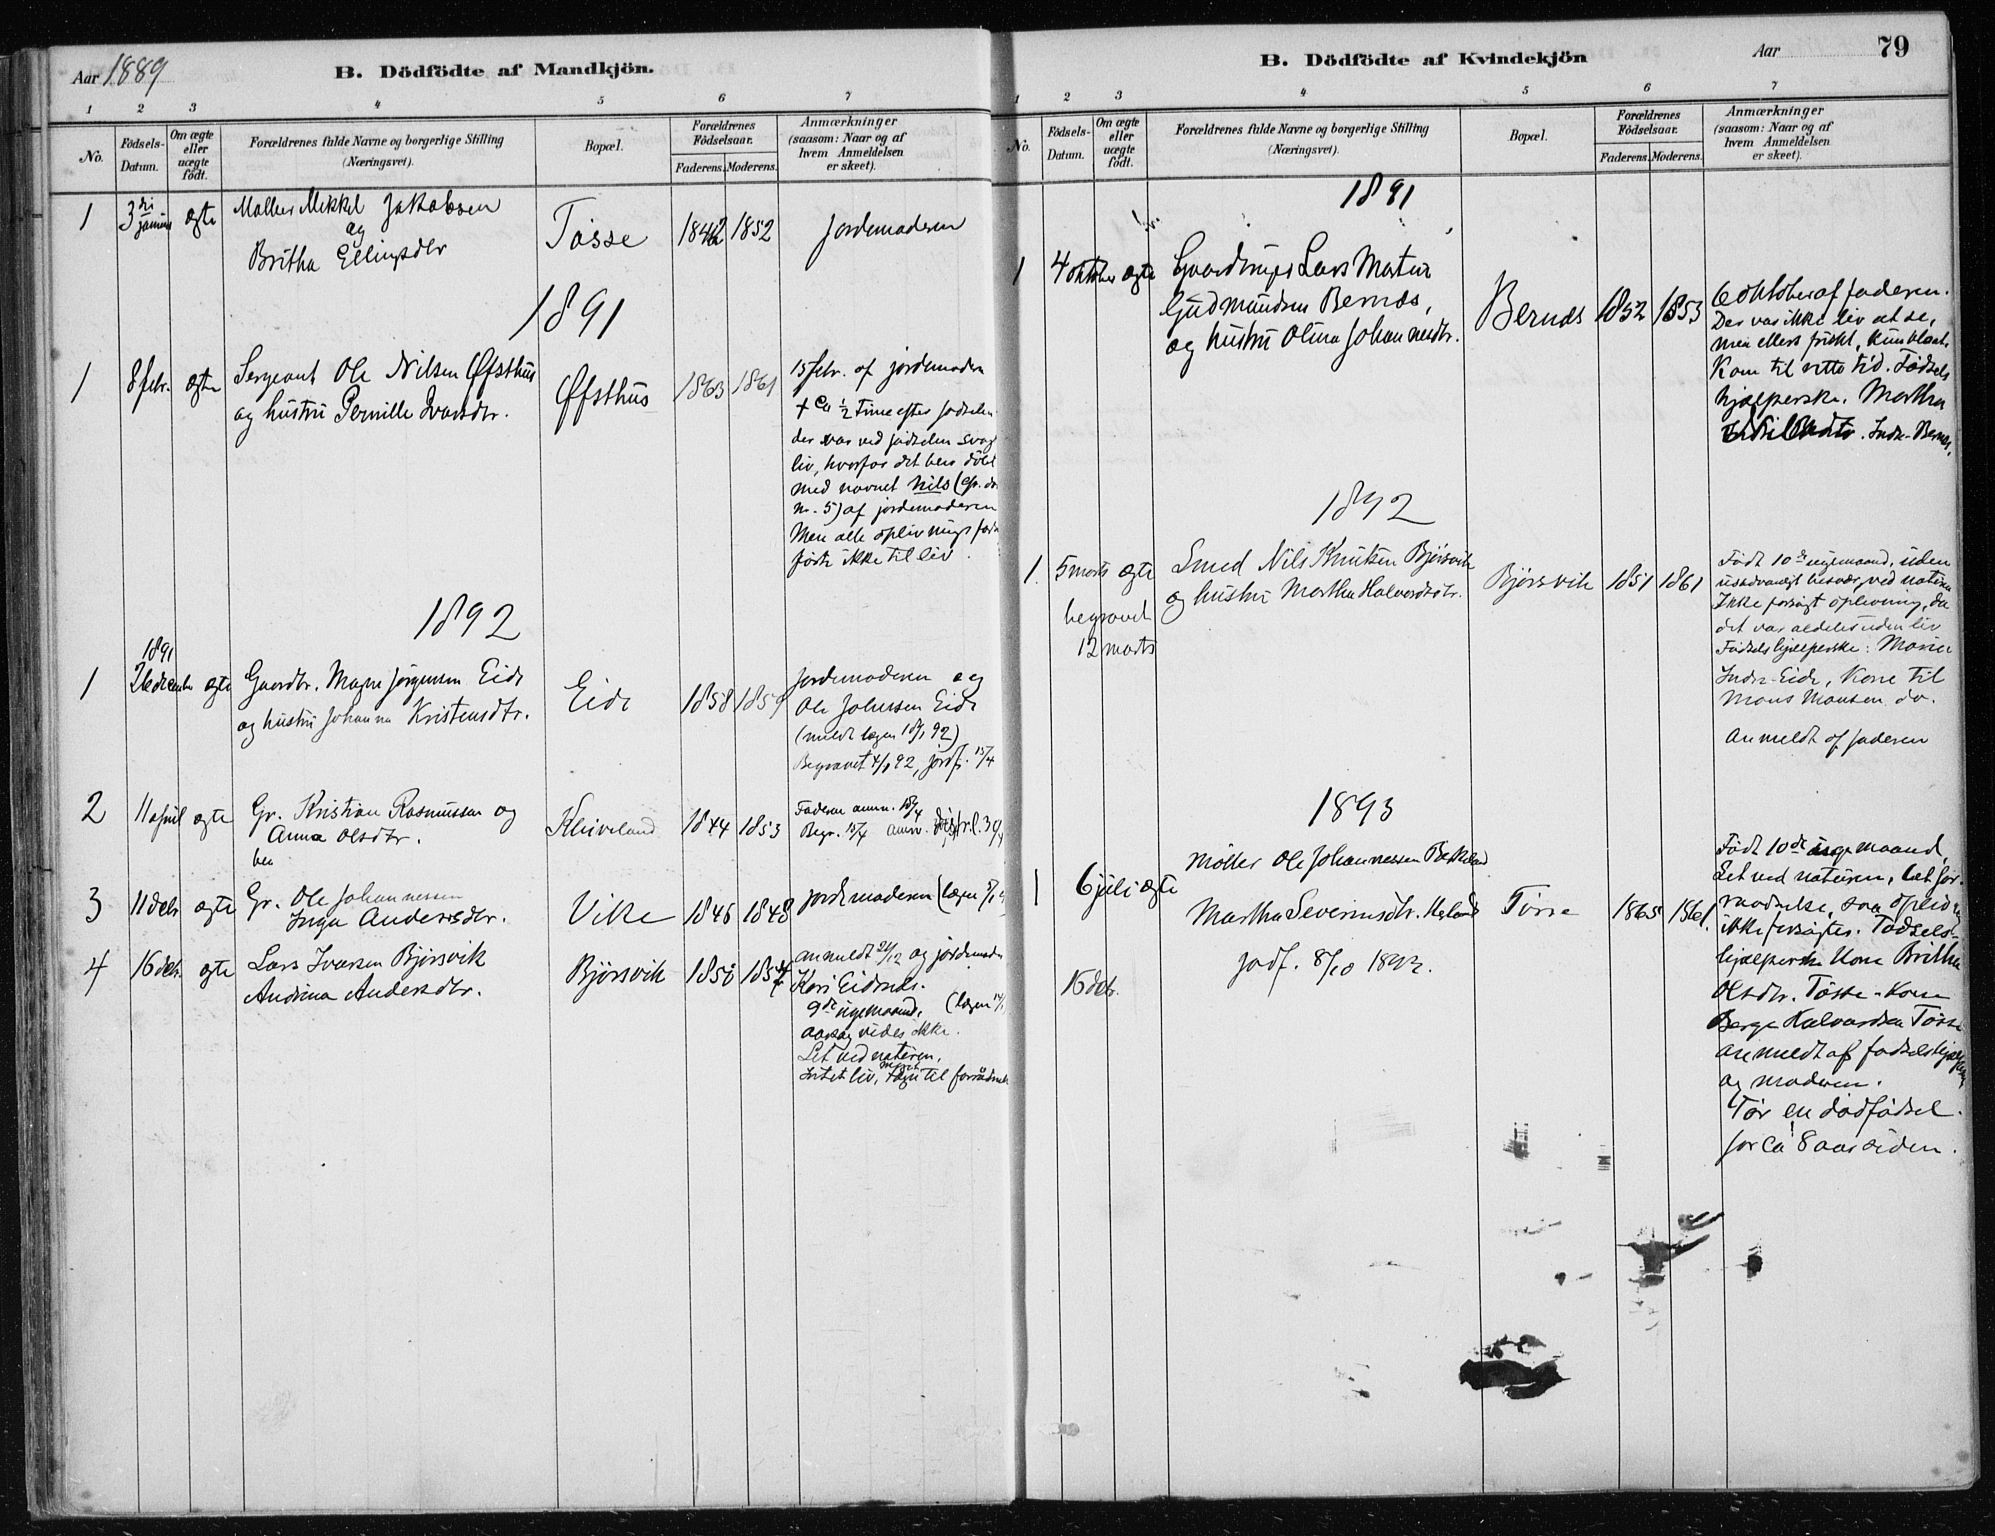 Aar 1889
B. Dödfödte af Mandkjön.
1 2 3 4 5 6 7
No.
Födsels-Datum.
Om ægte eller uægte födt.
Forældrenes fulde Navne og borgerlige Stilling
(Næringsvei).
Bopæl.
Forældrenes Födselsaar.
Faderens. Moderens.
Anmærkninger
(saasom: Naar og af
hvem Anmeldelsen
er skeet).
1 3die januar ægte Mikkel Jakobsen
og
Britha Ellingsdtr
Tosse 1842 1852 Jordemoderen
1891
1 8 febr. ægte Sergeant Ole Nilsen Øfsthus
og hustru Pernille Ivarsdtr.
Øfsthus 1863 1861
15 febr. af jordemoderen
+ Ca ½ time efter fødselen
der var ved fødselen svagt
liv, hvorfor det blev döbt
med navnet Nils (cfr.
nr. 5) af jordemoderen
Men alle oplivningsforsøg
förte ikke til liv
1892
1891
1 26 december ægte Gaardbr. Magne Jørgensen Eide
og hustru Johanna Kristensdtr.
Eide 1858 1859
Jordemoderen og
Ole Johnsen Eide
(meldt lægen 18/1 92)
Begravet 4/1 92, jordf. 15/4
2 11 april ægte Gr. Kristian Rasmussen og
Anna Olsdtr.
Kleiveland 1844 1853
Faderen anm. 18/4
Begr. 15/4 anm.
3 11 debr ægte Gr. Ole Johannessen
Inga Andersdtr.
Vike 1846 1848 jordemoderen (lægen
4 16 debr. ægte Lars Ivarsen Bjørsvik
Andrina Andersdtr.
Bjørsvik 1850
anmeldt 21/12 og jordemoder
Kari Eidsnes.
9de svgemaaned, (lægen
aarsag vides ikke.
Let ved naturen.
Intet liv, meget tegn til forraadnelse
B. Dödfödte af Kvindekjön
Aar 79
1 2 3 4 5 6 7
No.
Födsels-Datum.
Om ægte eller uægte födt.
Forældrenes fulde Navne og borgerlige Stilling
(Næringsvei).
Bopæl.
Forældrenes Födselsaar.
Faderens. Moderens.
Anmærkninger
(saasom: Naar og af
hvem Anmeldelsen
er skeet).
1891
1 4 oktober ægte Lars Martin
Gudmundsen Bernæs,
og hustru Olina Johannesdtr.
Bernæs 1852 1853
6 oktober af faderen.
Der var ikke liv at se,
men ellers friskt,
Kom til rette tid. Fødsels
hjælperske. Martha
Indre-Bernæs.
1892
1. 5 marts ægte Smed Nils Knutsen Bjørsvik
og hustru Martha Halvordsdtr.
Bjørsvik 1851 1861
begravet
12 marts
Født 10de svgemaaned, uden
usedvanligt besvær, ved naturen
Ikke forsøgt oplivning, da
det var aldeles uden liv
Fødselshjælperske:
Indre-Eide, Kone til
Mons Monsen do.
Anmeldt af faderen
1893
1 6 juli ægte Møller Ole Johannessen
Martha Severinsdtr.
jordf. 8/10 1893.
Tosse 1865 1861.
16 debr.
Født 10de svgemaaned,
Let ved naturen,
raadnelse, saa opliv
ikke forsøgtes. Fødsels-
hjælperske Kone Britha
Olsdtr. Tösse - Kone
Berge Halvordsen Tösse
anmeldt af fødselshjælpersk
og moderen.
Før en dødfödsel
for ca 8 aar siden.